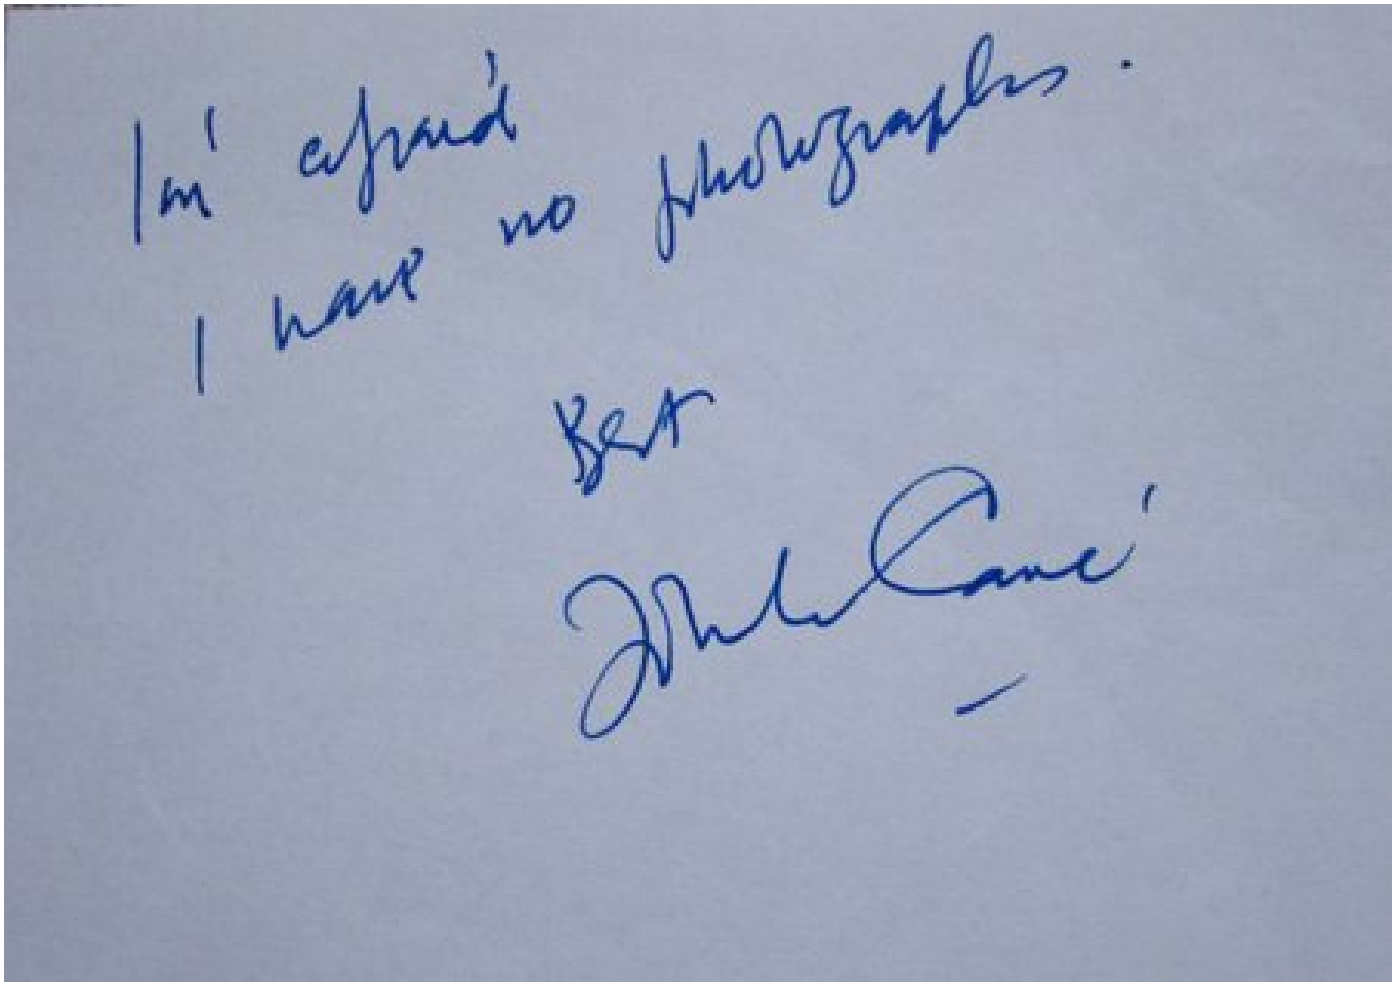 I'm afraid
I have no photographs.
Best
John le Carré